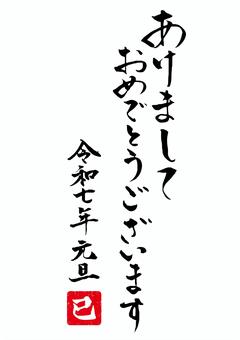 あけまして
おめでとうございます
令和七年 元旦
巳